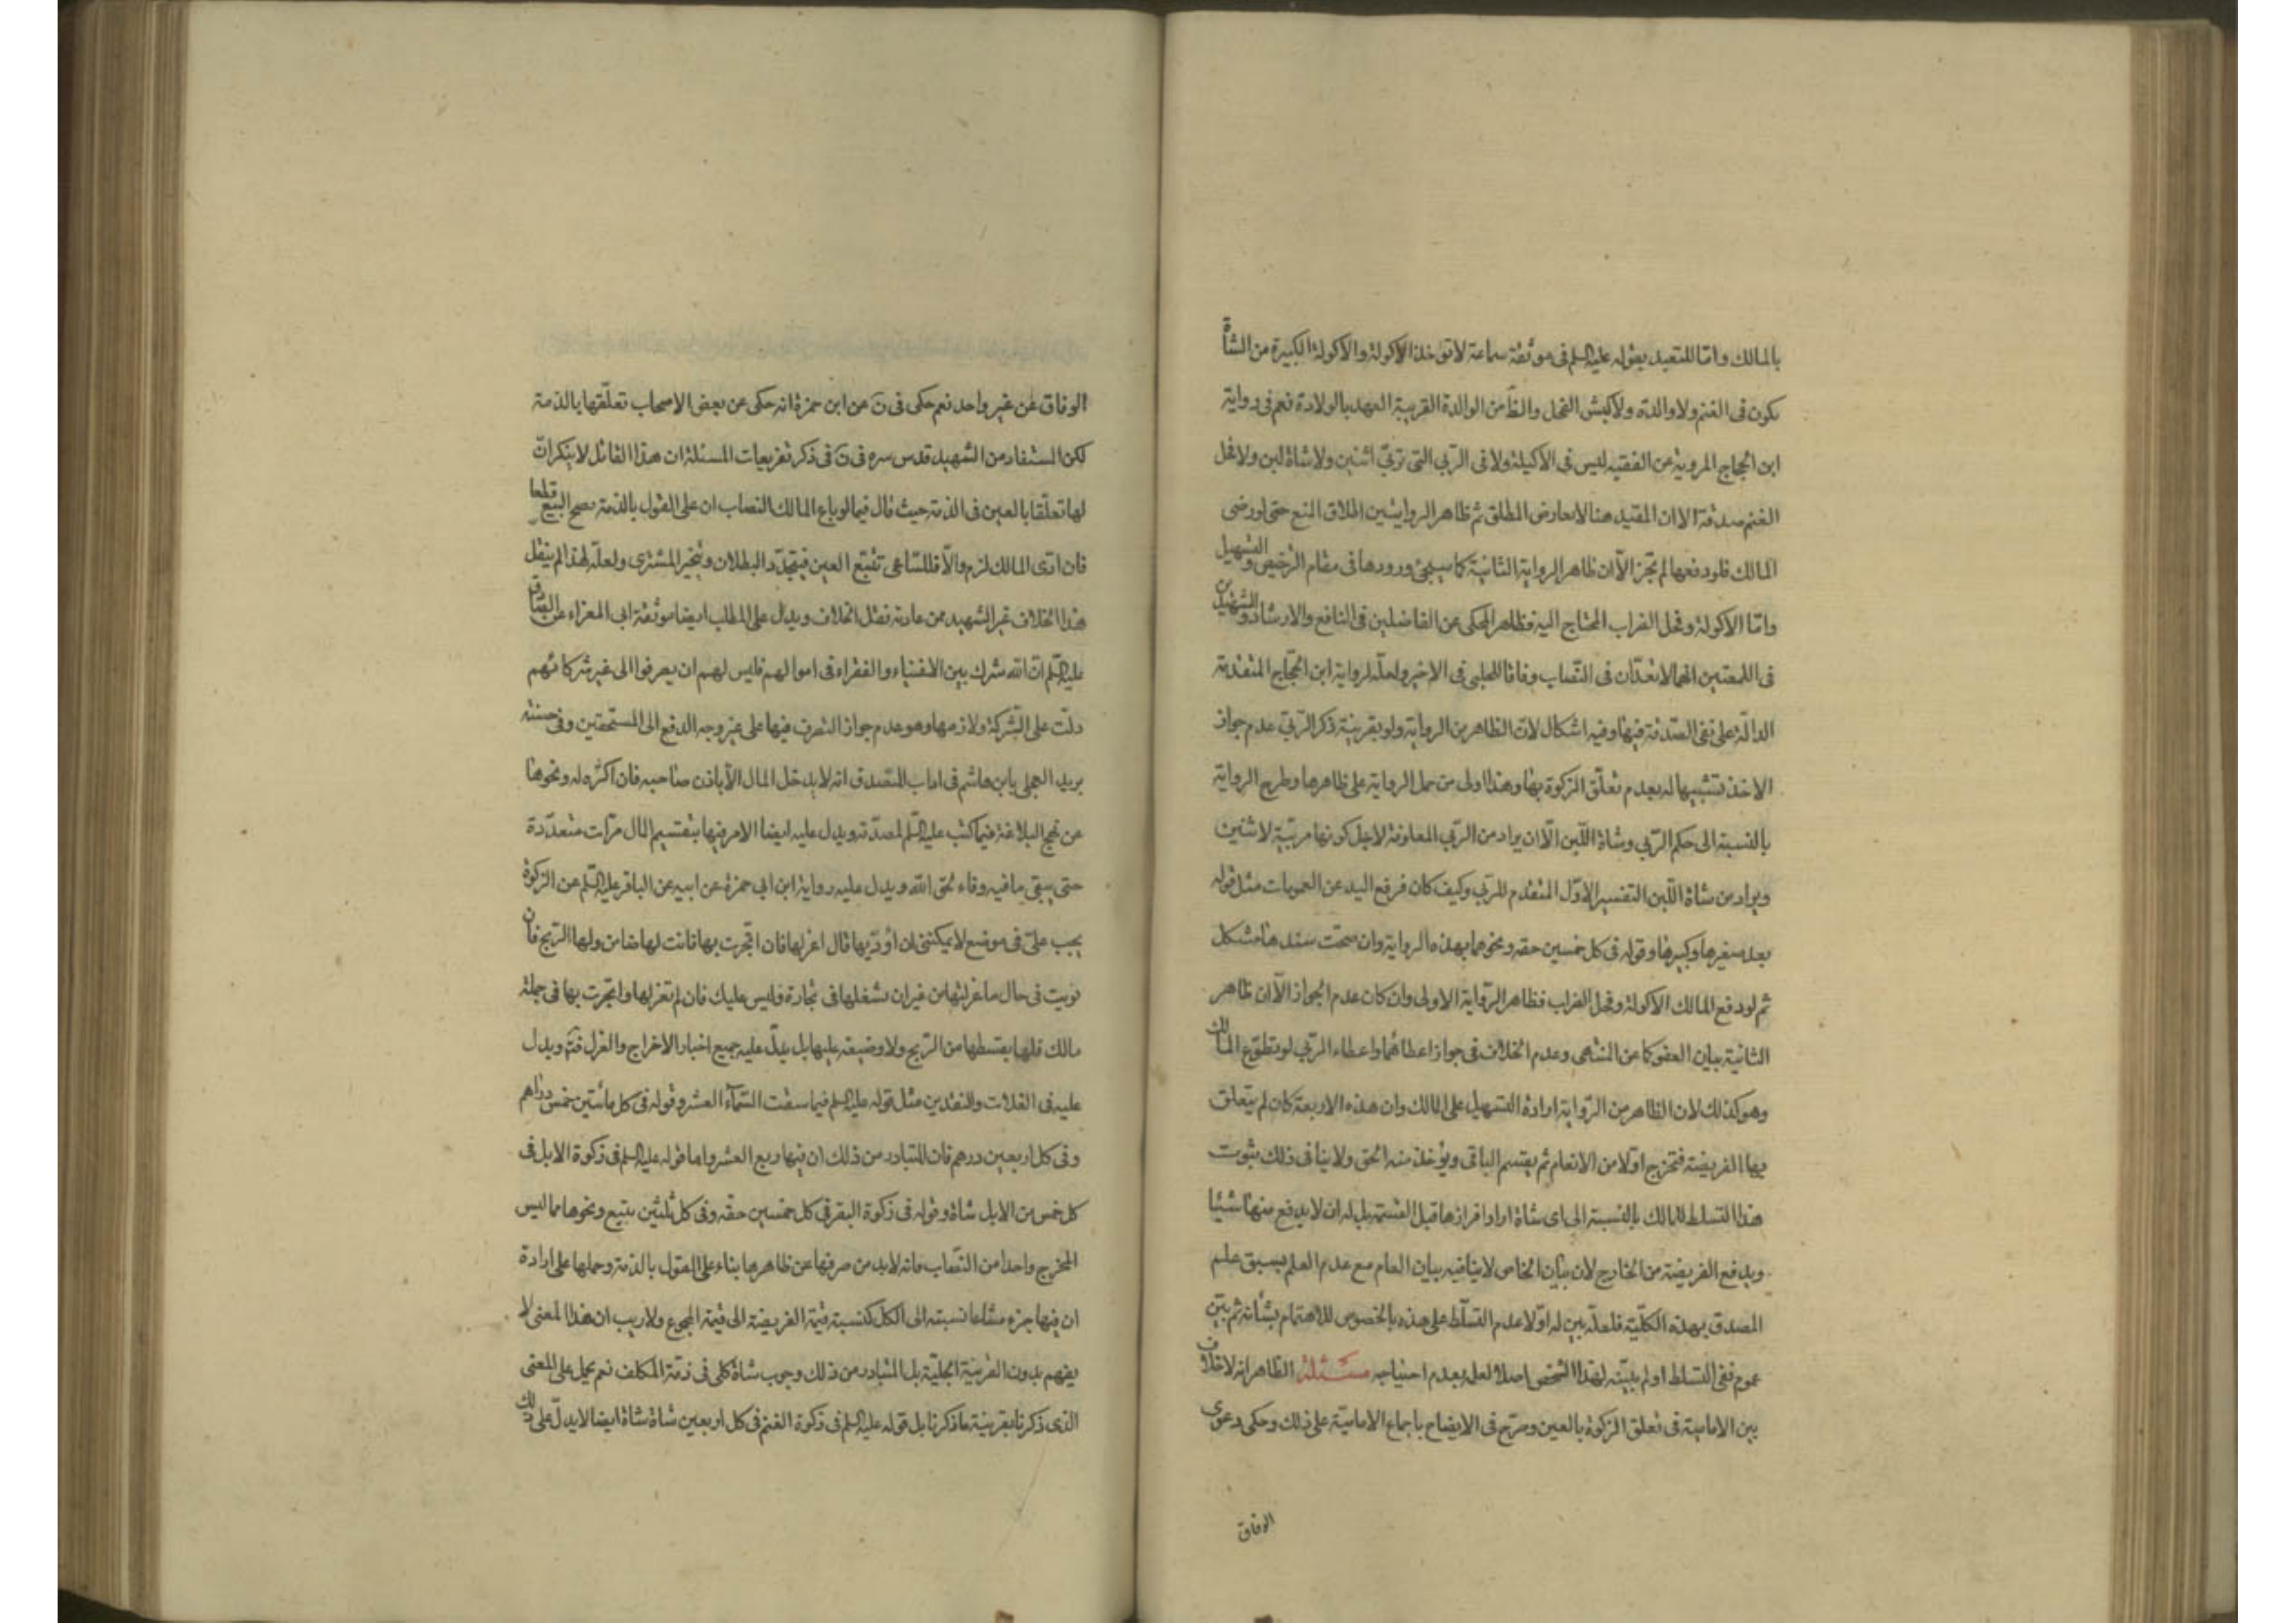 بالمالك واما للتعبد بقوله عليه السلم فى موثقة سماعة لا تؤخذ الاكولة والاكولة الكبيرة من الشاة
تكون فى الغنم ولا والدة ولا الكبش الفحل والظ من الوالدة القريبة العهد بالولادة نعم فى رواية
ابن الحجاج المروية عن الفقيه ليس فى الاكيلة ولا فى الربي التى تربى اثنين ولا شاة لبن ولا فحل
الغنم صدقة الا ان المقيد هنا لا يعارض المطلق ثم ظاهر الروايتين اطلاق المنع حتى لو رضى
المالك فلو دفعها لم تجز الا ان ظاهر الرواية الثانية كما سيجئ ورودها فى مقام الترخيص والتسهيل
واما الاكولة وفحل الضراب المحتاج اليه فظاهر المحكى عن الفاضلين فى النافع والارشاد والشهيدين
فى اللمعتين انهما لا تعدان فى النصاب وفاقا للحلبى فى الاخير ولعله لرواية ابن الحجاج المتقدمة
الدالة على نفى الصدقة فيها وفيه اشكال لان الظاهر من الرواية ولو بقرينة ذكر الربى عدم جواز
الاخذ تشبيها له بعدم تعلق الزكوة بها وهذا اولى من حمل الرواية على ظاهرها وطرح الرواية
بالنسبة الى حكم الربى وشاة اللبن الا ان يراد من الربى المعلوفة لاجل كونها مربية لاثنين
ويراد من شاة اللبن التفسير الاول المتقدم للربى وكيف كان فرفع اليد عن العمومات مثل قوله
يعد صغيرها وكبيرها وقوله فى كل خمسين حقه ونحوهما بهذه الرواية وان صحت سندها مشكل
ثم لو دفع المالك الاكولة وفحل الضراب فظاهر الرواية الاولى وان كان عدم الجواز الا ان ظاهر
الثانية بيان العفو كما عن المنتهى وعدم الخلاف فى جواز اعطائهما واعطاء الربى لو تطوع المالك
وهو كذلك لان الظاهر من الرواية ارادة التسهيل على المالك وان هذه الاربعة كان لم يتعلق
بها الفريضة فتخرج اولا من الانعام ثم يقسم الباقى ويؤخذ منه الحق ولا ينافى ذلك ثبوت
هذا التسلط للمالك بالنسبة الى اى شاة اراد افرازها قبل القسمة بل له ان لا يدفع منها شيئا
ويدفع الفريضة من الخارج لان بيان الخاص لا ينافيه بيان العام مع عدم العلم بسبق علم
المصدق بهذه الكلية فلعله بين له اولا عدم التسلط على هذه بالخصوص للاهتمام بشانه ثم بين
عموم نفى التسلط او لم يبينه لهذا الشخص اصلا لعله بعدم احتياجه مسئلة الظاهر انه لا خلاف
بين الامامية فى تعلق الزكوة بالعين وصرح فى الايضاح باجماع الامامية على ذلك وحكى دعوى
الوفاق
الوفاق عن غير واحد نعم حكى فى ن عن ابن حمزة انه حكى عن بعض الاصحاب تعلقها بالذمة
لكن المستفاد من الشهيد قدس سره فى ن فى ذكر تفريعات المسئلة ان هذا القائل لا ينكر ان
لها تعلقا بالعين فى الذمة حيث قال فيما لو باع المالك النصاب ان على القول بالذمة يصح البيع قطعا
فان ادى المالك لزم والا فللساعى تتبع العين فيتجدد البطلان ويتخير المشترى ولعله لهذا لم ينقل
هذا الخلاف غير الشهيد ممن عادته نقل الخلاف ويدل على المطلب ايضا موثقة ابى المعزاء عن الصادق
عليه السلم ان الله شرك بين الاغنياء والفقراء فى اموالهم فليس لهم ان يصرفوا الى غير شركائهم
دلت على الشركة ولازمها وهو عدم جواز التصرف فيها على غير وجه الدفع الى المستحقين وفى حسنة
بريد العجلى يابن هاشم فى اداب المتصدق انه لا يدخل المال الا باذن صاحبه فان اكثره له ونحوها
عن نهج البلاغة فيما كتب عليه السلم لمصدقه ويدل عليه ايضا الامر فيها بتقسيم المال مرات متعددة
حتى يبقى ما فيه وفاء لحق الله ويدل عليه رواية ابن ابى حمزة عن ابيه عن الباقر عليه السلم عن الزكوة
يجب على فى موضع لا يمكننى ان اؤديها قال اعزلها فان اتجرت بها فانت لها ضامن ولها الربح فان
نويت فى حال ما عزلتها من غير ان تشغلها فى تجارة فليس عليك فان لم تعزلها واتجرت بها فى جملة
مالك فلها بقسطها من الربح ولا وضيعة عليها بل يدل عليه جميع اخبار الاخراج والعزل فتم ويدل
عليه فى الغلات والنقدين مثل قوله عليه السلم فيما سقت السماء العشر وقوله فى كل مأتين خمس دراهم
وفى كل اربعين درهم فان المتبادر من ذلك ان فيها ربع العشر واما قوله عليه السلم فى زكوة الابل فى
كل خمس من الابل شاة وقوله فى زكوة البقر فى كل خمسين حقه وفى كل ثلثين تبيع ونحوها مما ليس
المخرج واحدا من النصاب فانه لا بد من صرفها عن ظاهرها بناء على القول بالذمة وحملها على ارادة
ان فيها جزء مشاعا نسبته الى الكل كنسبة قيمة الفريضة الى قيمة المجموع ولا ريب ان هذا المعنى لا
يفهم بدون القرينة الجلية بل المتبادر من ذلك وجوب شاة كلى فى ذمة المكلف نعم يحمل على المعنى
الذى ذكرنا بقرينة ما ذكرنا بل قوله عليه السلم فى زكوة الغنم فى كل اربعين شاة شاة ايضا لا يدل على ذلك